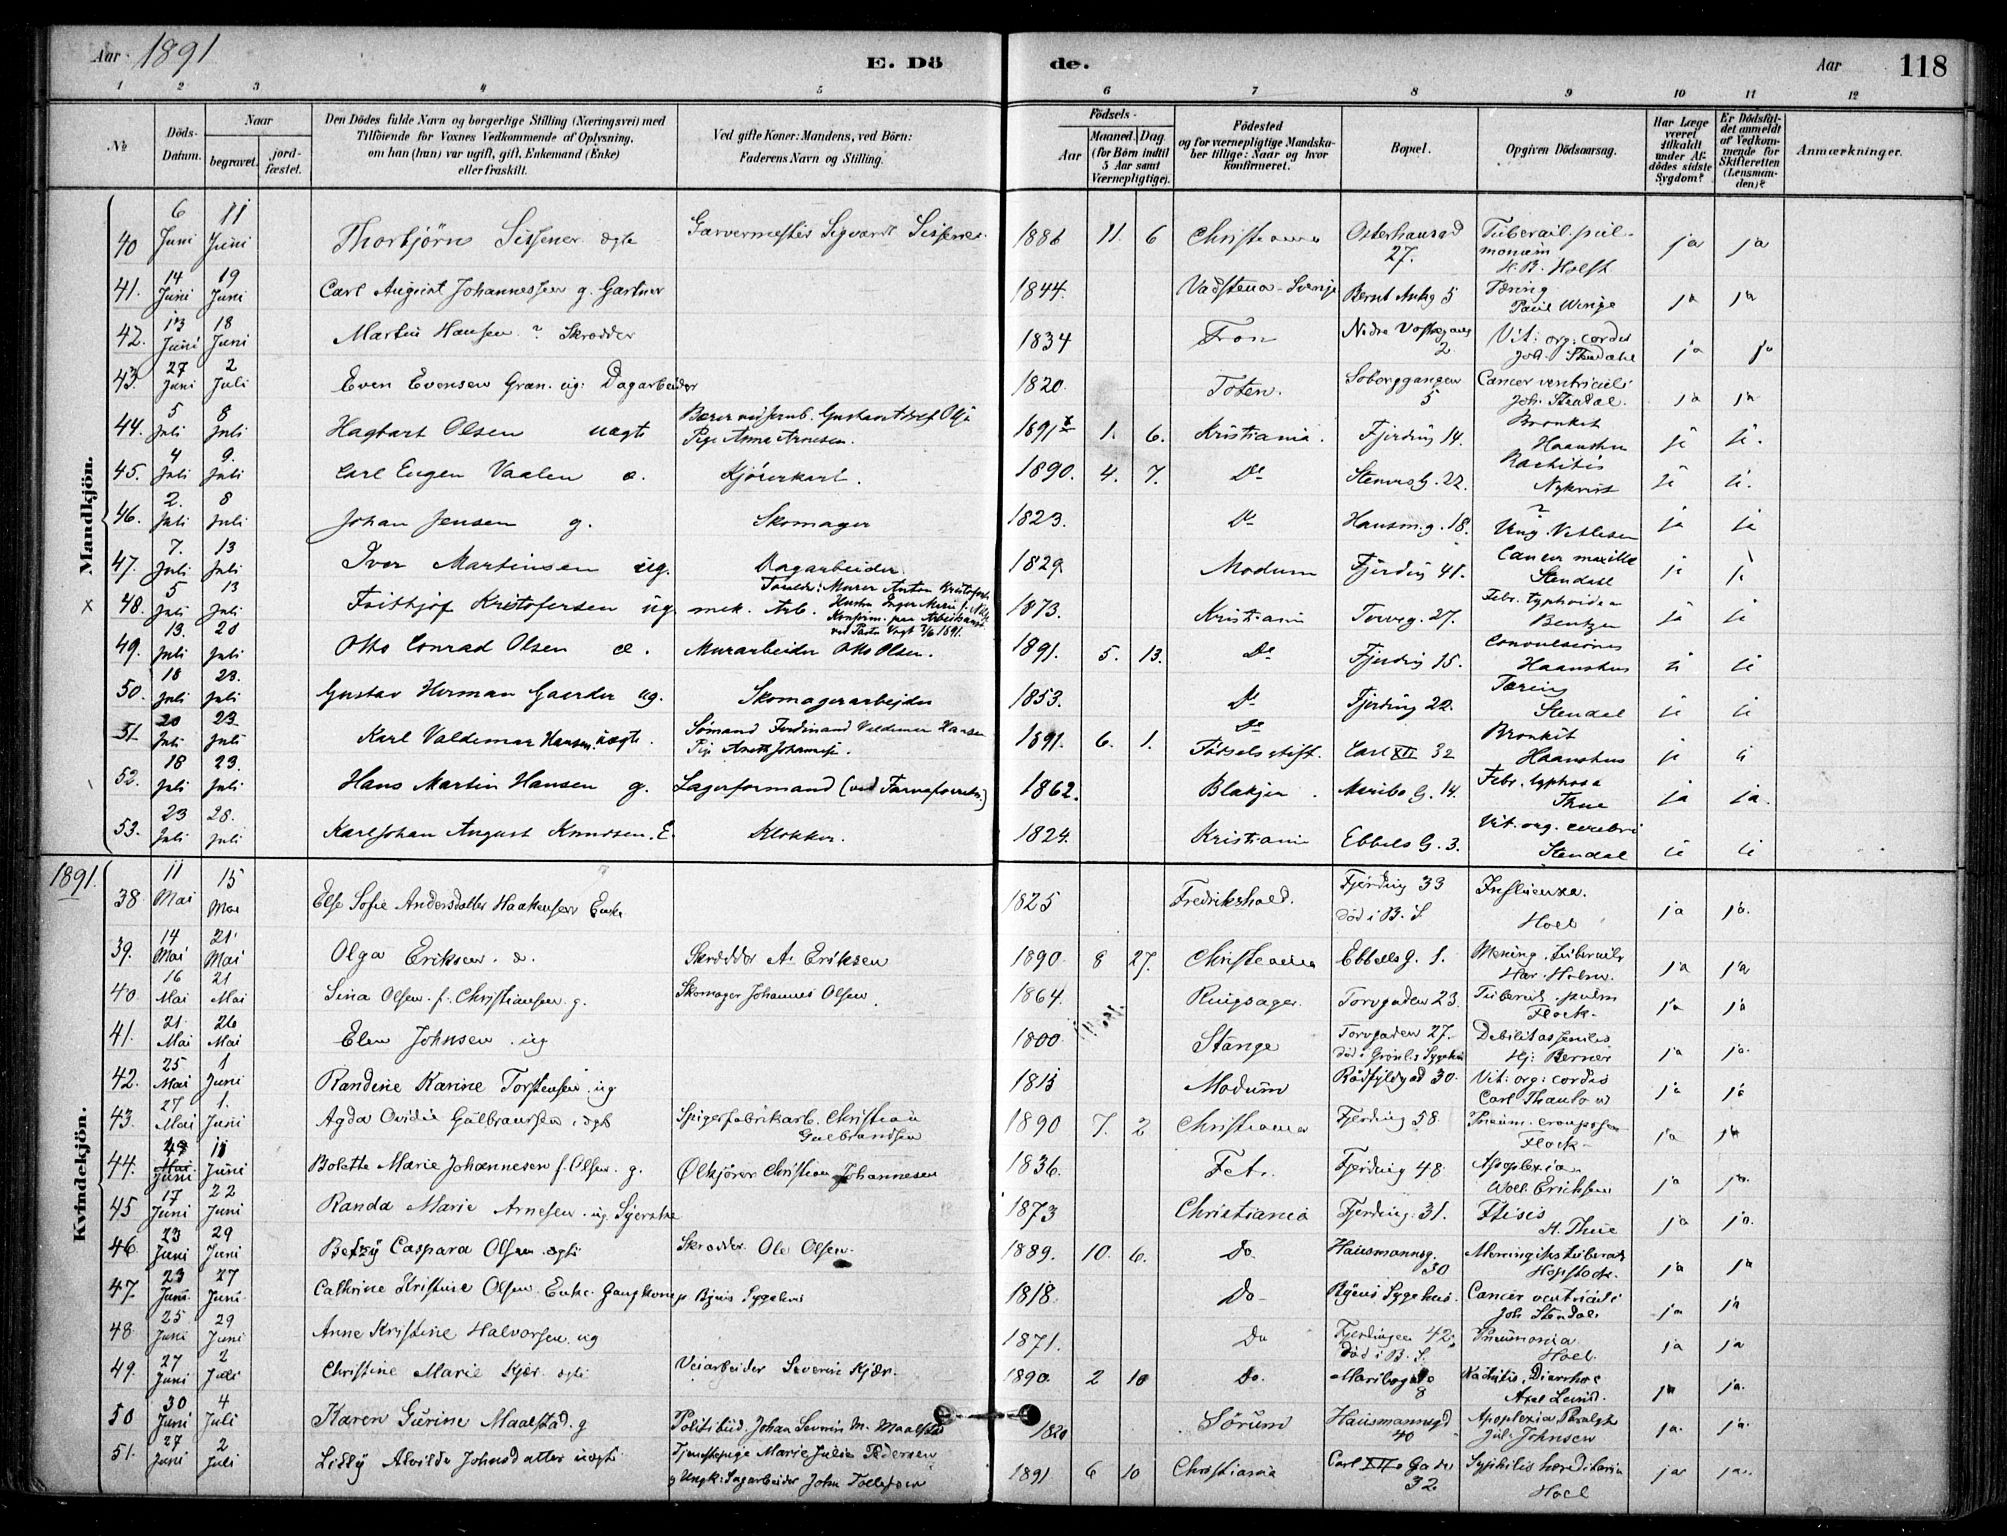 Aar 1891 E. Dö de. Aar 118
1 2 3 4 5 6 7 8 9 10 11 12
№ Döds-Datum. Naar begravet. jord-fæstet. Den Dödes fulde Navn og borgerlige Stilling (Næringsvei) med Tilföiende for Voxnes Vedkommende af Oplysning, om han (hun) var ugift, gift, Enkemand (Enke) eller fraskilt. Ved gifte Koner: Mandens, ved Börn: Faderens Navn og Stilling. Födsels- Aar Maaned. Dag (for Börn indtil 5 Aar samt Værnepligtige). Födested og for værnepligtige Mandskaber tillige: Naar og hvor konfirmeret. Bopæl. Opgiven Dödsaarsag. Har Læge været tilkaldt under Afdödes sidste Sygdom? Er Dödsfaldet anmeldt af Vedkommende for Skifteretten (Lensmanden)? Anmærkninger.
Mandkjön.
40 6 Juni 11 Juni Thorbjörn Sissener ægte Garvermester Sigvardt Sissener 1886 11. 6 Christiania Osterhausgd 27. Tubercul. pulmonum H. B. Holst ja ja
41. 14 Juni 19 Juni Carl August Johannessen g. Gartner 1844. Vadstena - Sverige Bernt Ankg 5 Tæring Paul Winge ja ja
42. 13 Juni 18 Juni Martin Hansen ? Skrædder 1834 Fron Nedre 2 Vit: org: cordis Joh. Stendahl ja ja
43. 27 Juni 2 Juli Even Evensen Gran. ug: Dagarbeider 1820. Toten. 5 Cancer ventriculi Joh. Stendal. ja ja
44. 5 Juli 8 Juli Hagbart Olsen uægte Gustav Pige Anna Arnesen. 1891 1. 6. Kristiania. Fjerding 14. Bronkit Haanshus ja ja
45. 4 Juli 9. Juli Carl Eugen Vaalen æ. Kjörerkarl. 1890. 4. 7. Do Stenersg. 22. Rachitis Nykvist ja ja
46. 2. Juli 8 Juli Johan Jensen g. Skomager 1823. Do Hausm.g. 18. ? Ung Vetlesen ja ja
47. 7. Juli 13 Juli Iver Martinsen ug. Dagarbeider. 1829 Modum Fjerding 41. Cancer maxille Stendahl ja ja
x 48. 5 Juli 13 Juli Fritthjof Kristofersen ug. mek. Arb. Forældre: Murer Anton Kristofersen Hustru Inger Marie f. Konfirm. paa Arbeidsanst. ved Pastor Vogt 7/6 1891. 1873. Kristiania Torvg. 27. Febr. typhoidea Bentzen ja ja
49. 13. Juli 20 Juli Otto Conrad Olsen æ. Murarbeider Otto Olsen. 1891. 5. 13. Do Fjerding 15. Convulsiones Haanshus ja ja
50. 18 Juli 23. Juli Gustav Herman Gaarder ug. Skomagerarbeider 1853. Do Fjerding 22. Tæring Stendal ja ja
51. 20 Juli 23 Juli Karl Valdemar Hansen. uægte. Sömand Ferdinand Valdemar Hansen Pige Anette 1891. 6. 1. Do Födselsstift. Carl XII 32 Bronkit Haanshus ja ja
52. 18 Juli 23. Juli Hans Martin Hansen g. Lagerformand (ved ) 1862. Blakjer. Maribo G. 14. Febr. typhosa Thue ja ja.
53. 23 Juli 28. Juli Karl Johan August Knudsen. E. Klokker. 1824. Kristiania Ebbels G. 3. Vit. org. cerebri Stendal ja ja
1891.
Kvindekjön.
38 11 Mai 15 Mai Else Sofie Andersdatter Haakensen Enke 1825 Fredrikshald. Fjerding 33 död i B. S. Influenza. Hoel ja ja.
39. 14 Mai 21 Mai Olga Eriksen. æ. Skrædder A. Eriksen 1890 8 27. Christiania Ebbells G. 1. Mening. tubercul. Har. Holm. ja ja
40. 16 Mai 21 Mai Lina Olsen f. Christiansen g. Skomager Johannes Olsen 1864. Ringsager. Torvgaden 23. Tubercl. pulm Flock. ja ja
41. 21. Mai 26 Mai Elen Johnsen. ug 1800. Stange Torvgaden 27. död i Grönl.s Sygehus Debilitas senilis Hj: Berner ja ja.
42. 25 Mai 1 Juni Randine Karine Torstensen. ug 1815 Modum Rödfyldgad 30. Vit: org: cordis Carl Thaulow ja ja
43. 27 Mai 1. Juni Agda Ovidie Gulbrandsen. ægte Spigerfabrikarb. Christian Gulbrandsen 1890 7. 2 Christiania Fjerding 58. Pneum. crouposa Flock. ja ja
44. Juni 11 Juni Bolette Marie Johannesen f. Olsen. g. Ölkjörer Christian Johannesen 1836. Fet. Fjerding 48 Apoplexia Woll. Ericksen ja ja.
45 17 Juni 22 Juni Randa Marie Arnesen. ug. Syerske 1873 Christiania Fjerding. 31. Ftisis H. Thue ja ja.
46. 23 Juni 29 Juni Betzy Caspara Olsen ægte Skrædder. Ole Olsen. 1889. 10 6. Do. Hausmannsg. 30 Meningitis tubercul. Hopstock. ja ja
47. 23 Juni 27 Juni Cathrine Kristine Olsen. Enke. Gangkone p Byens Sygehus 1818. Do Byens Sygehus. Cancer ventriculi Joh Stendal ja ja
48 25 Juni 29 Juni Anne Kristine Halvorsen. ug 1871. Do Fjerdingen 42 Död i B. S. Pneumonia. Hoel. ja ja
49. 27 Juni 2 Juli Christine Marie Kjær. ægte Veiarbeider Severin Kjær. 1890 2 10 Do. Maribogade 8 Rachitis, Diarrhoe Axel Lund. ja ja.
50 30 Juni 4 Juli Karen Gurine Maalstad. g Politibud. Johan Severin M. Maalstad 1820 Sörum Hausmannsgd 40 Apoplexia Paralys Jul. Johnsen ja. ja.
51. 27 Juni 2 Juli Lilly Alvilde Johnsdatter uægte Tjenestepige Marie Julie Pedersen og Ungk: Sagarbeider John Tollefsen 1891 6 10 Christiania Carl XII Gade 32 Syphilis hereditaria Hoel ja ja.